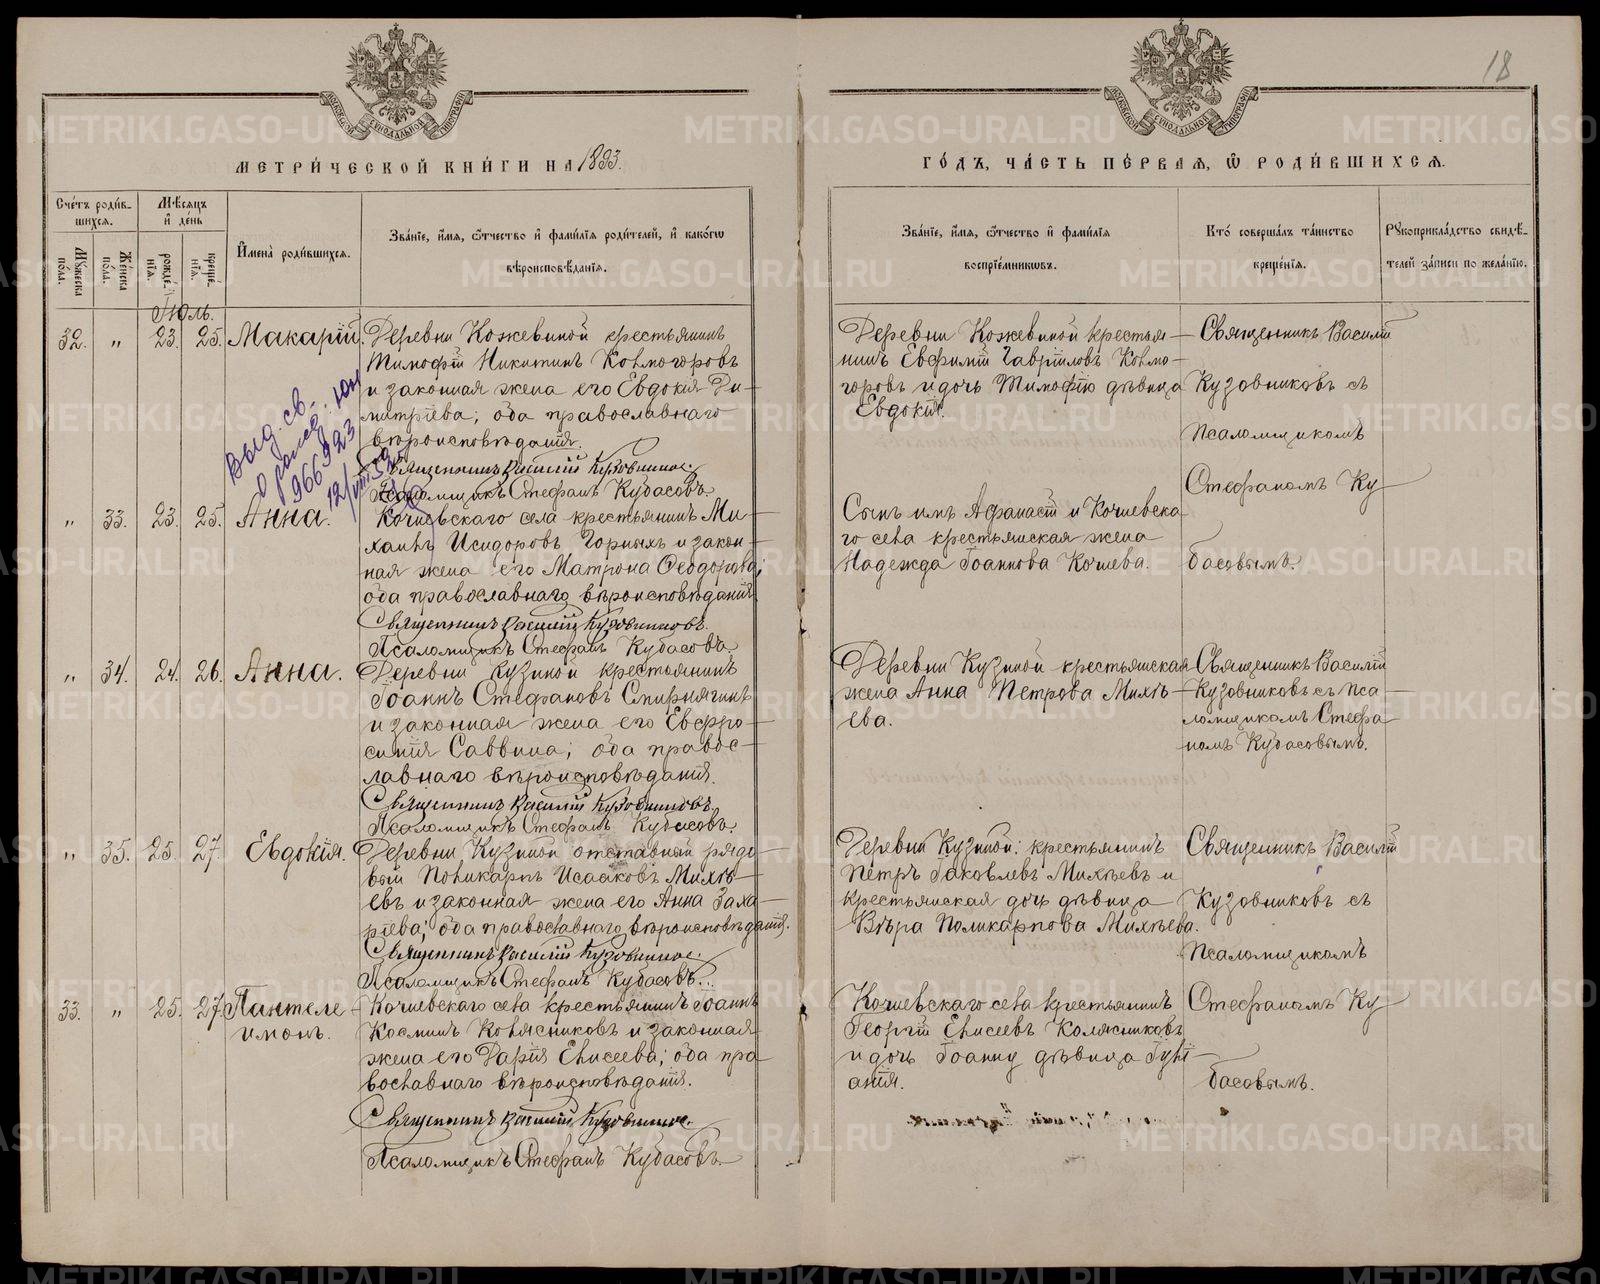 18
МОСКОВСКОЙ СѴНОДАЛЬНОЙ ТИПОГРАФІИ
МОСКОВСКОЙ СѴНОДАЛЬНОЙ ТИПОГРАФІИ
МЕТРИ́ЧЕСКОЙ КНИ́ГИ НА 1893.
ГО́ДЪ, ЧА́СТЬ ПЕ́РВАЯ, Ѡ РОДИ́ВШИХСЯ.
Сче́тъ роди́в-
шихся.
Мѣсяцъ
и де́нь
Мꙋжеска
по́ла.
Же́нска
по́ла.
рожде́-
нїя.
креще́-
нїя.
Имена̀ роди́вшихся.
Зва́нїе, и́мя, ѻ҆́тчество и фами́лїя роди́телей, и како́гѡ
вѣроисповѣ́данїя.
Зва́нїе, и́мя, ѻ҆́тчество и фами́лїя
воспрїе́мниковъ.
Кто́ соверша́лъ та́инство
креще́нїя.
Рꙋкоприкла́дство свидѣ́-
телей за́писи по жела́нїю.
Іюль.
32. " 23. 25. Макарій.
Деревни Кожевиной крестьянинъ
Тимофій Никитинъ Колмогоровъ
и законная жена его Евдокія Ди-
митріева; оба православнаго
вѣроисповѣданія.
Священникъ Василій Кузовников.
Псаломщикъ Стефанъ Кубасовъ.
Деревни Кожевиной крестья-
нинъ Евфимій Гавріиловъ Колмо-
горовъ и дочь Тимофію дѣвица
Евдокія.
Священникъ Василій
Кузовниковъ съ
псаломщикомъ
Стефаномъ Ку
басовымъ.
Выд. св.
о рожд.
966923
12/VIII
" 33. 23. 25. Анна.
Кочневскаго села крестьянинъ Ми-
хаилъ Исидоровъ Горныхъ и закон-
ная жена его Матрона Ѳеодорова;
оба православнаго вѣроисповѣданія
Священникъ Василій Кузовниковъ.
Псаломщикъ Стефанъ Кубасовъ.
Сынъ имъ Афанасій и Кочневска-
го села крестьянская жена
Надежда Іоаннова Кочнева.
" 34. 24. 26. Анна.
Деревни Кузиной крестьянинъ
Іоаннъ Стефановъ Смирнягинъ
и законная жена его Евфро-
синія Саввина; оба правос-
лавнаго вѣроисповѣданія.
Священникъ Василій Кузовниковъ.
Псаломщикъ Стефанъ Кубасовъ.
Деревни Кузиной крестьянская
жена Анна Петрова Михѣ-
ева.
Священникъ Василій
Кузовниковъ съ пса-
ломщикомъ Стефа-
номъ Кубасовымъ.
" 35. 25. 27. Евдокія.
Деревни Кузиной отставный рядо-
вый Поликарпъ Исааковъ Михѣ-
евъ и законная жена его Анна Заха-
ріева; оба православнаго вѣроисповѣданія.
Священникъ Василій Кузовников.
Псаломщикъ Стефанъ Кубасовъ.
Деревни Кузиной: крестьянинъ
Петръ Іаковлевъ Михѣевъ и
крестьянская дочь дѣвица
Вѣра Поликарпова Михѣева.
Священникъ Василій
Кузовниковъ съ
псаломщикомъ
Стефаномъ Ку
басовымъ.
33. " 25. 27. Пантеле-
имонъ.
Кочневскаго села крестьянинъ Іоаннъ
Косминъ Колясниковъ и законная
жена его Дарія Елисеева; оба пра-
вославнаго вѣроисповѣданія.
Священникъ Василій Кузовников.
Псаломщикъ Стефанъ Кубасовъ
Кочневскаго села крестьянинъ
Георгій Елисеевъ Колясниковъ
и дочь Іоанну дѣвица Іулі-
анія.
METRIKI.GASO-URAL.RU